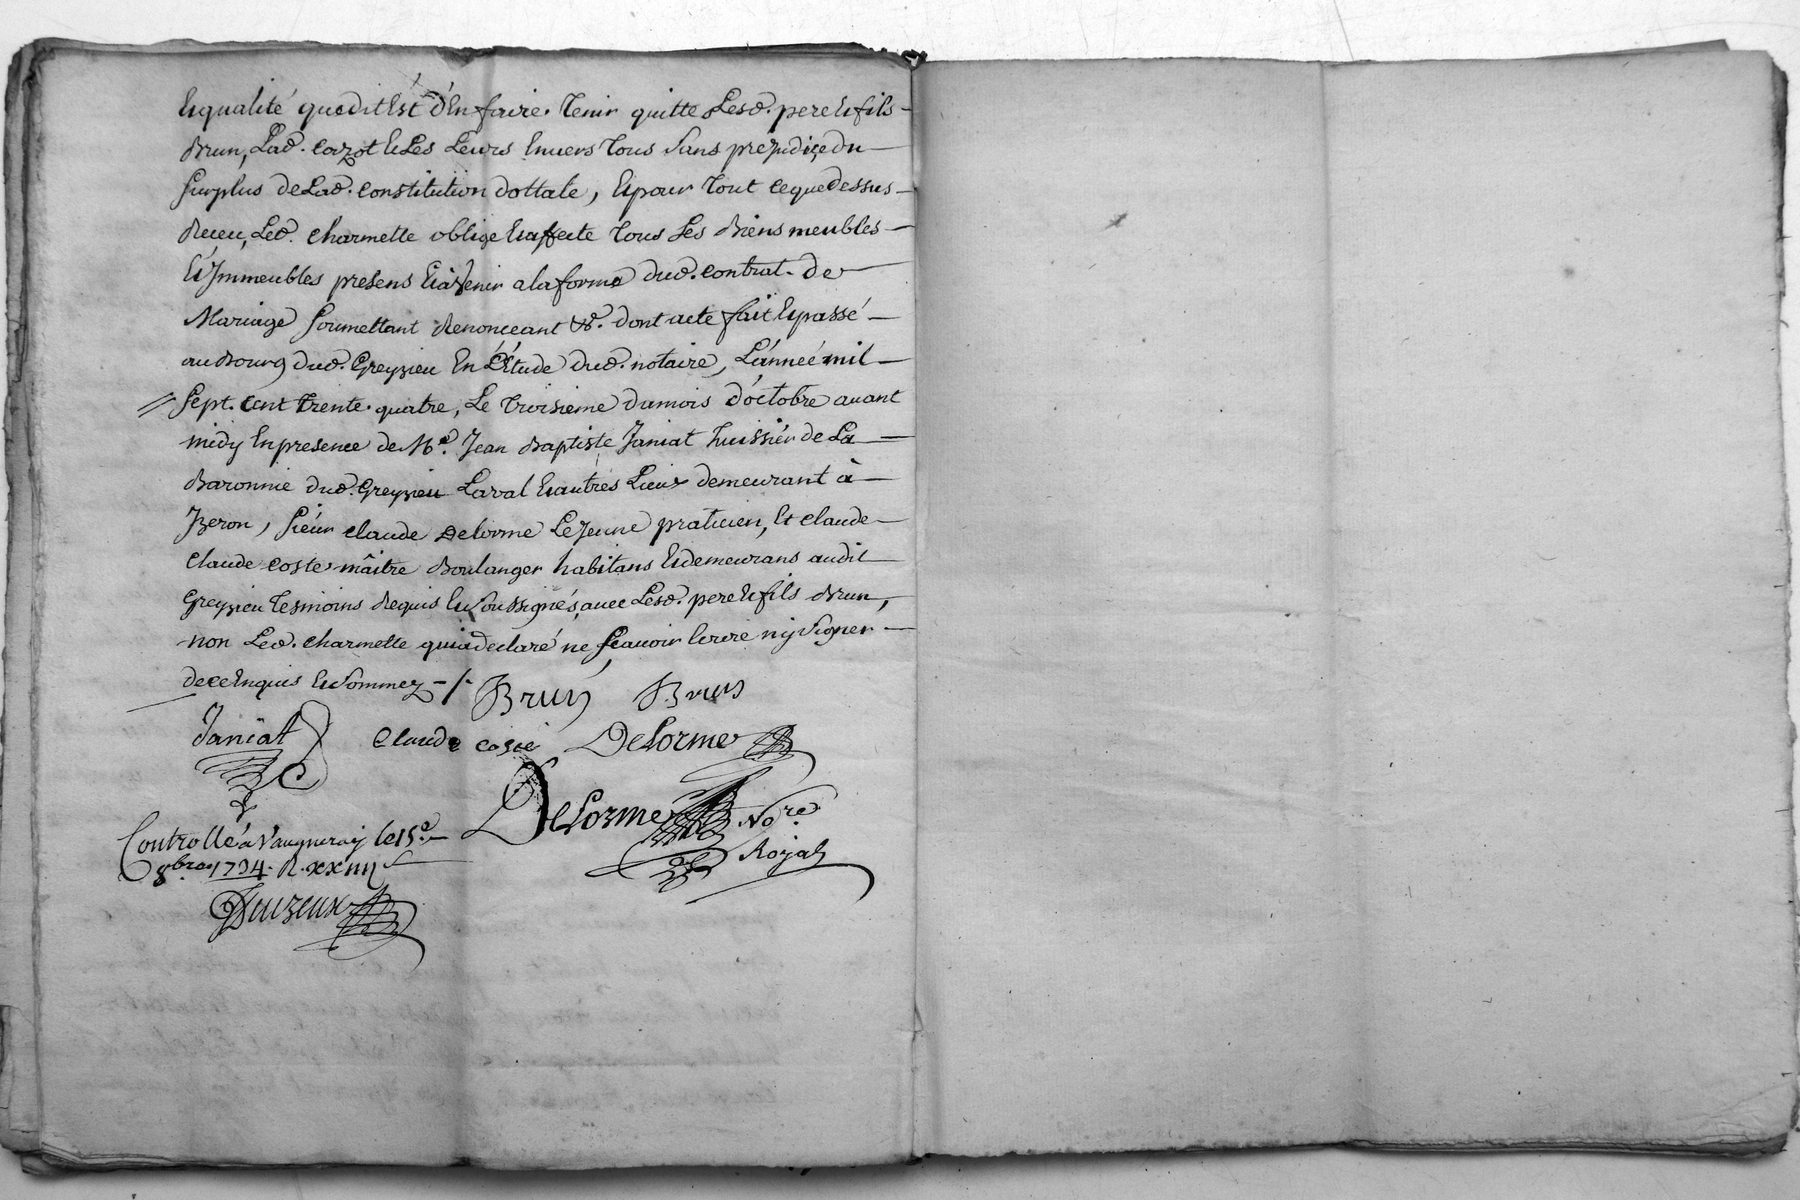 Esqualité quedit Est d'En faire tenir quitte Lesd. pere & fils
Brun, Lad. Cozot & Les Leurs Envers tous sans prejudiçe du
surplus de Lad. constitution dottale, & pour tout ce que dessus
Receu, Led. Charmette oblige & affecte tous Ses Biens meubles
& Jmmeubles presens & àvenir a la forme dud. contrat de
Mariage soumettant Renonceant &c. dont acte fait & passé
au Bourg dud. Greyzieu En L'Etude dud. notaire, L'année mil
sept. cent trente. quatre, Le troisieme du mois d'octobre avant
midy En presence de Me. Jean Baptiste Janiat huissier de La
Baronnie dud. Greyzieu Laval & autres Lieux demeurant à
Jzeron, sieur claude Delorme Le Jeune praticien, Et claude
claude coste maître Boulanger habitans & demeurans audit
Greyzieu tesmoins Requis & soussignés avec Lesd. pere & fils Brun,
non Led. Charmette qui a declaré ne sçavoir Ecrire ny signer
de ce Enquis & sommez -/.
Brun Brun
Janiat claude coste Delorme
Delorme Nore.
Royal
Controllé à Vaugneray le 15e.
8bre 1734. R. xxiiii s